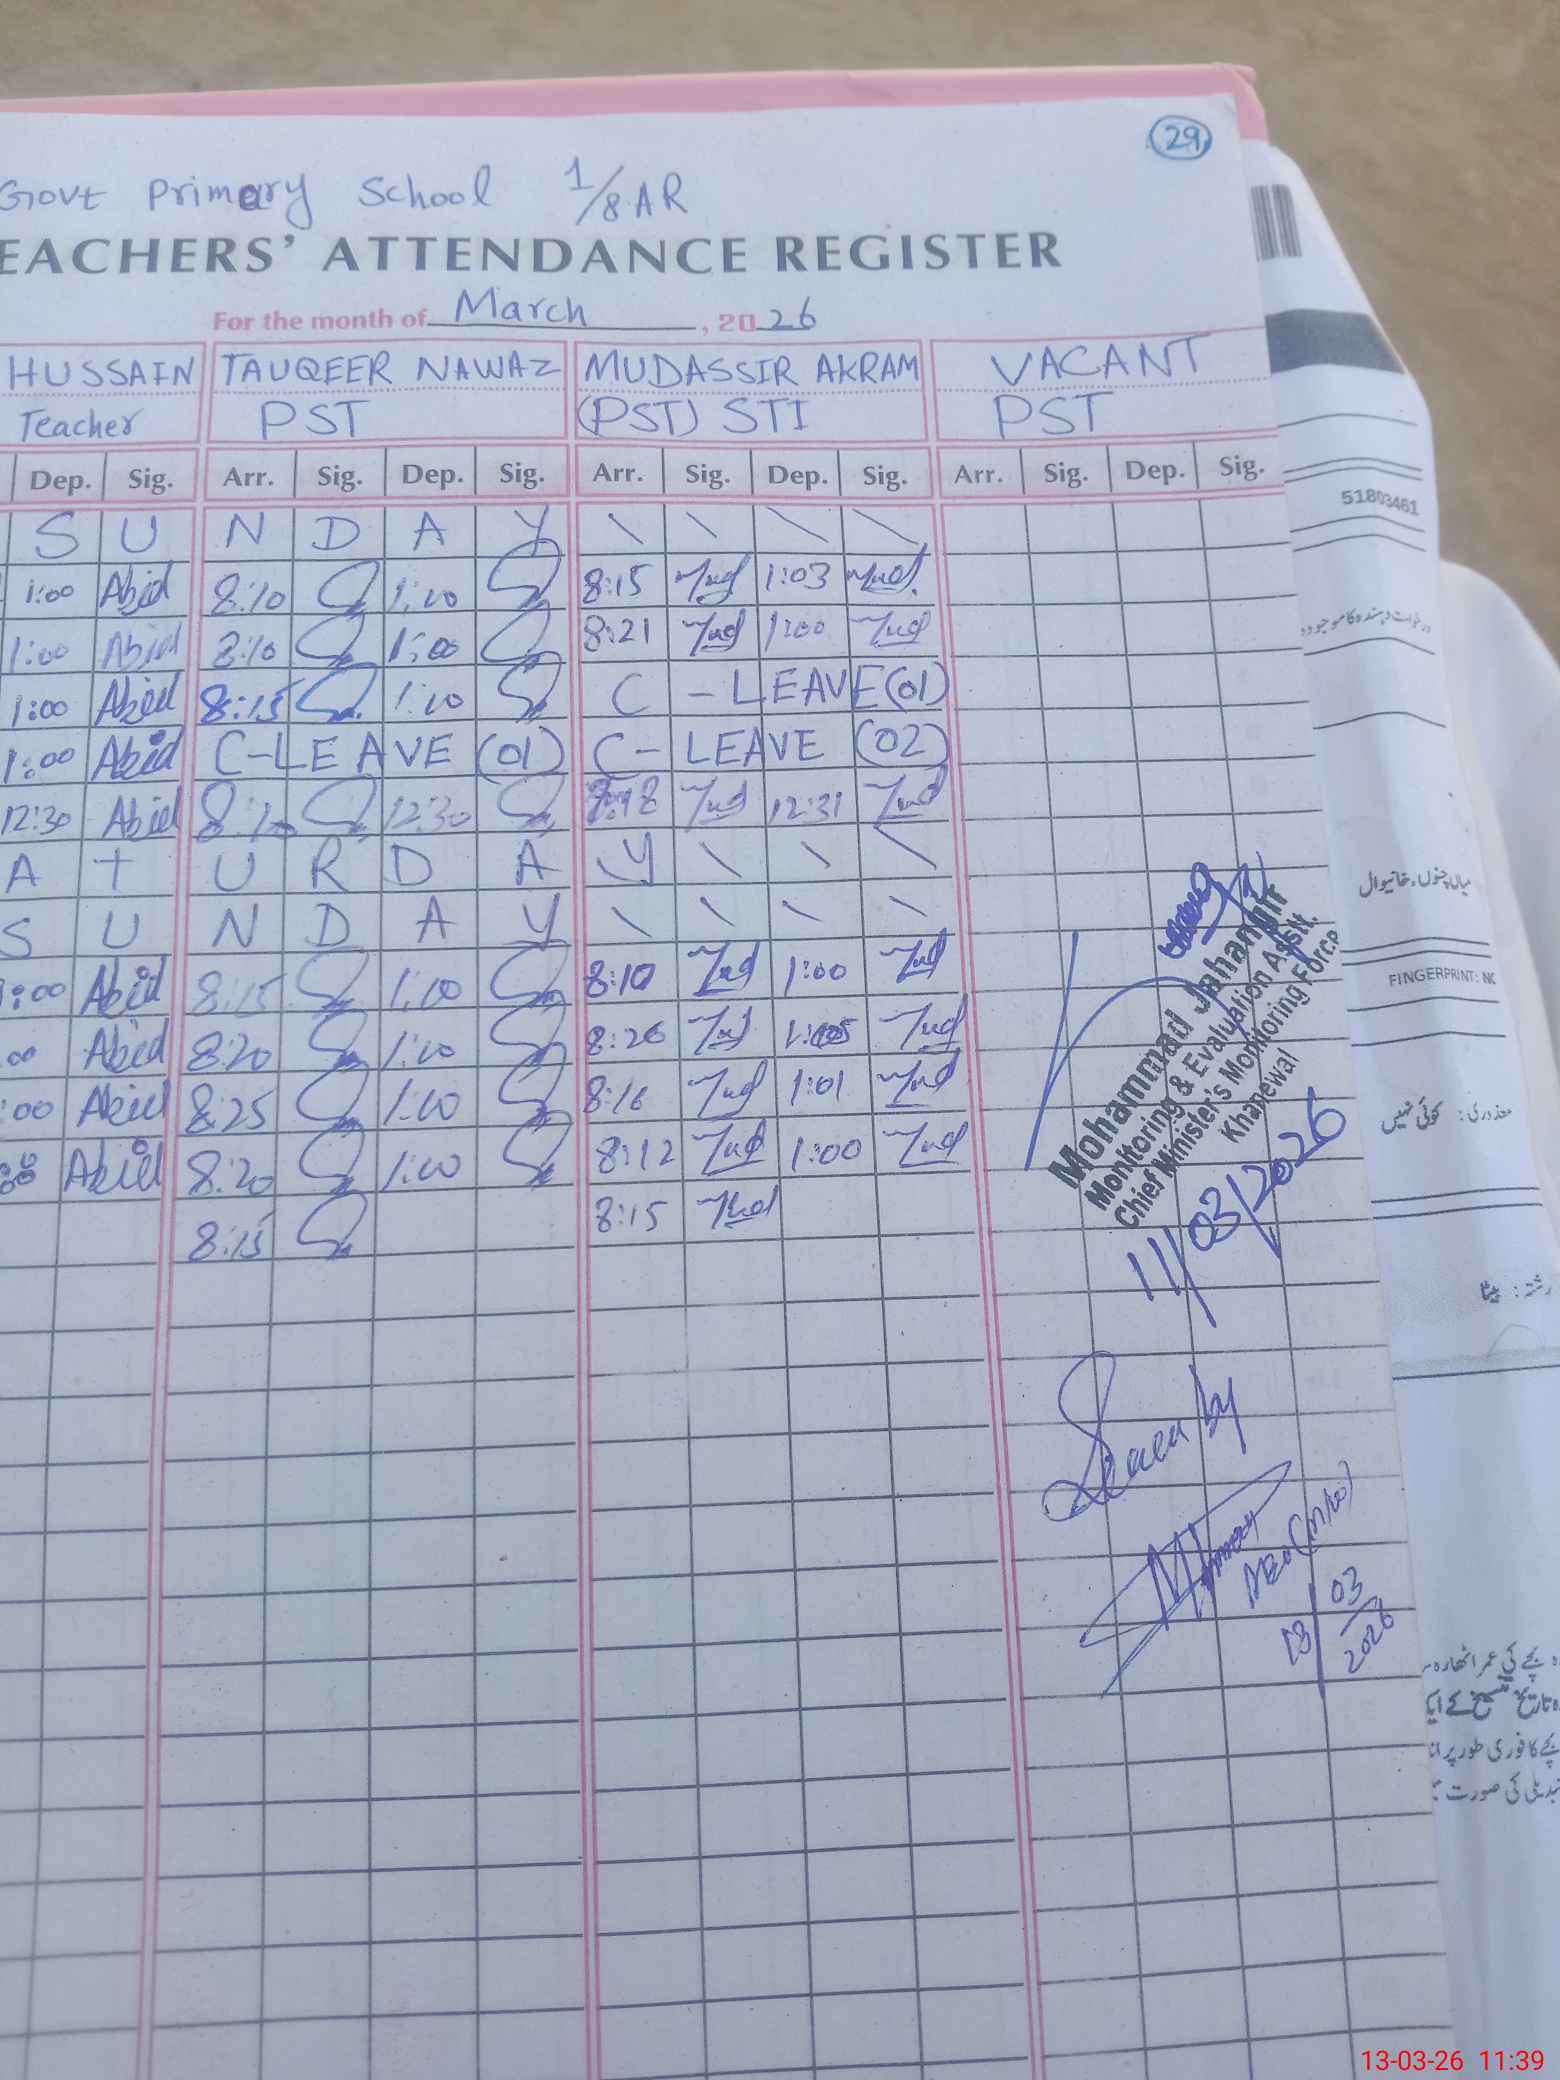 29
Govt Primary School 1/8 AR
EACHERS' ATTENDANCE REGISTER
For the month of March, 2026
HUSSAIN TAUQEER NAWAZ MUDASSIR AKRAM VACANT
Teacher PST (PST) STI PST
Dep. Sig. Arr. Sig. Dep. Sig. Arr. Sig. Dep. Sig. Arr. Sig. Dep. Sig.
S U N D A Y \ \ \ \
1:00 Abid 8:10 1:00 8:15 Mud 1:03 Mud
1:00 Abid 8:10 1:00 8:21 Mud 1:00 Mud
1:00 Abid 8:15 1:00 C - LEAVE (01)
1:00 Abid C-LEAVE (01) C- LEAVE (02)
12:30 Abid 12:30 Mud 12:31 Mud
A T U R D A Y \ \ \
S U N D A Y \ \ \ \
:00 Abid 8:15 1:00 8:10 Mud 1:00 Mud
00 Abid 8:20 1:00 8:26 Mud 1:05 Mud
:00 Abid 8:25 1:00 8:16 Mud 1:01 Mud
Abid 8:20 1:00 8:12 Mud 1:00 Mud
8:15 8:15 Mud
Mohammad Jahangir
Monitoring & Evaluation Asstt.
Chief Minister's Monitoring Force
Khanewal
11/03/2026
Seen by
AEO
13 03
2026
51803461
درخواست دہندہ کا موجودہ
میاں چنوں، خانیوال
FINGERPRINT: NO
معذوری: کوئی نہیں
رشتہ: بیٹا
بچے کی عمر اٹھارہ
تاریخ تنسیخ کے ایک
بچے کا فوری طور پر
تبدیلی کی صورت
13-03-26 11:39